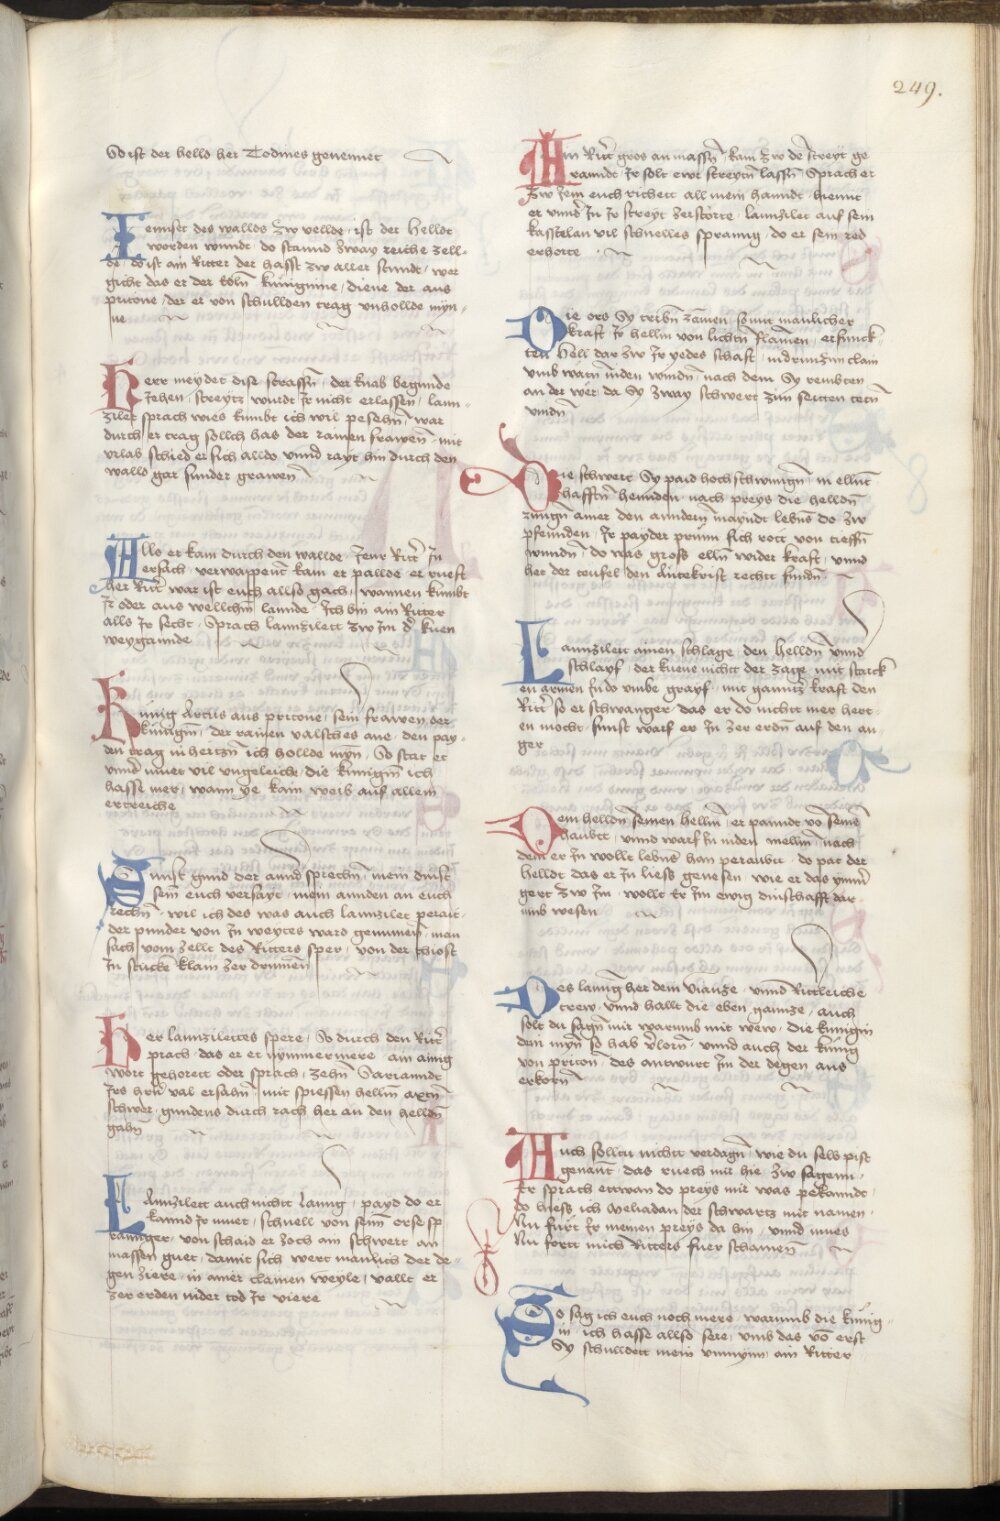 249.
So ist der bolld her Todines genennet
Jennset des wallds Zw vellde · ist der Helldt
worden wundt · do stannd zway reiche zell-
de · do ist ain Ritter der hasst zw aller stundt · wer
gicht das er der edln küniginne · diene der aus
pritone · der er von schullden trag unhollde myn-
ne
Herr meydet dise strassñ · der knab begunde
Jehen · streytz wurdt Jr nicht erlassen · lann-
zilet sprach wies kumbt ich wil pesehñ · war
durch er trag sollch has der rainen frawen · mit
urlab schied er sich alldo vnnd rayt hin durch den
walld gar sunder grawen
Allso er kam durch den wallde · Jenr Ritr̃ Jn
ersach · verwappent kam er pallde · er rueft
her Ritr̃ war ist euch allso gach · wannen kumbt
Jr oder aus wellchm lannde · Ich bin ain Ritter
alls Jr secht · sprach lannzilett zw Jm dˢ kuen
weygannde
Künig Artus aus pritone · seinr frawen der
künigin · der rainen valsches ane · den pay-
den trag in hertzñ ich hollde myn · So stat er
vnnd ymer vil ungeleiche · die künigin ich
hasse mer · wann ye kain weib auf allem
ertreiche
Sunst gund der annd sprechñ · mein dinst
sein euch versayt · mein annden an euch
rechñ · wil ich des was auch lannzilet perait ·
der punder von Jn weytes ward genumen · man
sach vom zellt des Ritters sper · von der thiost
Jn stucke klain zer drumen
Her lannzilettes spere · So durch den Ritr̃
prach · das er et nymmermere · ain ainig
wort gehorett oder sprach · zehn Sarianndt
Jrs hrñ val ersahñ · mit spiessen hellm axtñ
schwer · gundens durch rach her an den helldñ
gahñ
Lannzilett auch nicht lanng · payd do er
kannd Jr muet · schnell von seim orse sp
rannger · von schaid er zoch ain schwert an
massen guet · damit sich wert manlich der de-
gen ziere · in ainer clainen weyle · vallt er
zer erden nider tod Jr viere
Ain Ritr̃ gros an massñ · kam zw de streyt ge
rannndt · Jr solt ewr streytñ lassñ Sprach er
zw Jem euch richett all mein hanndt · hiemit
er vnnd Jn Jr streyt zerstorte · lannzilet auf sein
kasstelan vil schnelles sprannng · do er sein red
erhorte
Die ors Sy tribñ zamen · somit manlicher
kraft Jr hellm von lichtñ flamen · erfunck
ten Hell dar zw Jr yedes schaft · wdrunzun clain
vmb warñ inden windñ · nach dem Sy rembten
an der wer · da Sy zway schwert zun seitten tetñ
vindñ
Die schwert Sy paid hoch schwungñ · in ellnt
hafften hennden · nach preys die helldñ
rungñ ainer den anndern maynndt lebñs do zw
pfennden · Jr payder prunn sich rott von tieffñ
wunndñ · do was gross elln wider kraft · vnnd
her der teufel den Anntekrist rechtt fundñ
Lannzilett ainen schlage · den helldñ vnnd
schlayf · der kuene nicht der zage · mit starck
en armen Jn do vmbe grayf · mit gantz kraft den
Ritr̃ so er schwanger · das er do nicht mer hert
en mocht · sunst warf er Jn zer erdñ auf den an
ger
Dem helldñ seinen hellm · er panndt võ seinẽ
haubtt · vnnd warf Jn inden mellm · nach
dem er Jn wollt lebñs han peraubtt · do pat der
helldt das er Jn liess genesen · wie er das ymm̃
gert zw Jm · wollt er Jm ewig dinschafft dar
umb wesen
Des lanng her dem vianze · vnnd Rittleiche
trew · vnnd hallt die eben gannze · auch
solt du sagñ mir warumb mit wew · die künigin
dein myñ so hab vˢlorñ · vnnd auch der künig
von pritoñ · des antwurt Jm der degen aus
erkorñ
Auch solltu nicht verdagñ · wie du selb pist
genant · das ruech mir hie zw sagenn ·
Er sprach ettwan do preys mir was pekanndt ·
do hiess ich Meliadan der schwartz mit namen ·
Nu fürt Jr meinen preys da hin · vnnd mues
Nu fortt mich Ritters fuer schamen
So sag ich euch noch mere · warumb die künig-
in · ich hasse allso sere · vmb das võ erst
Sy schulldett mein vnnmynn ain Ritter